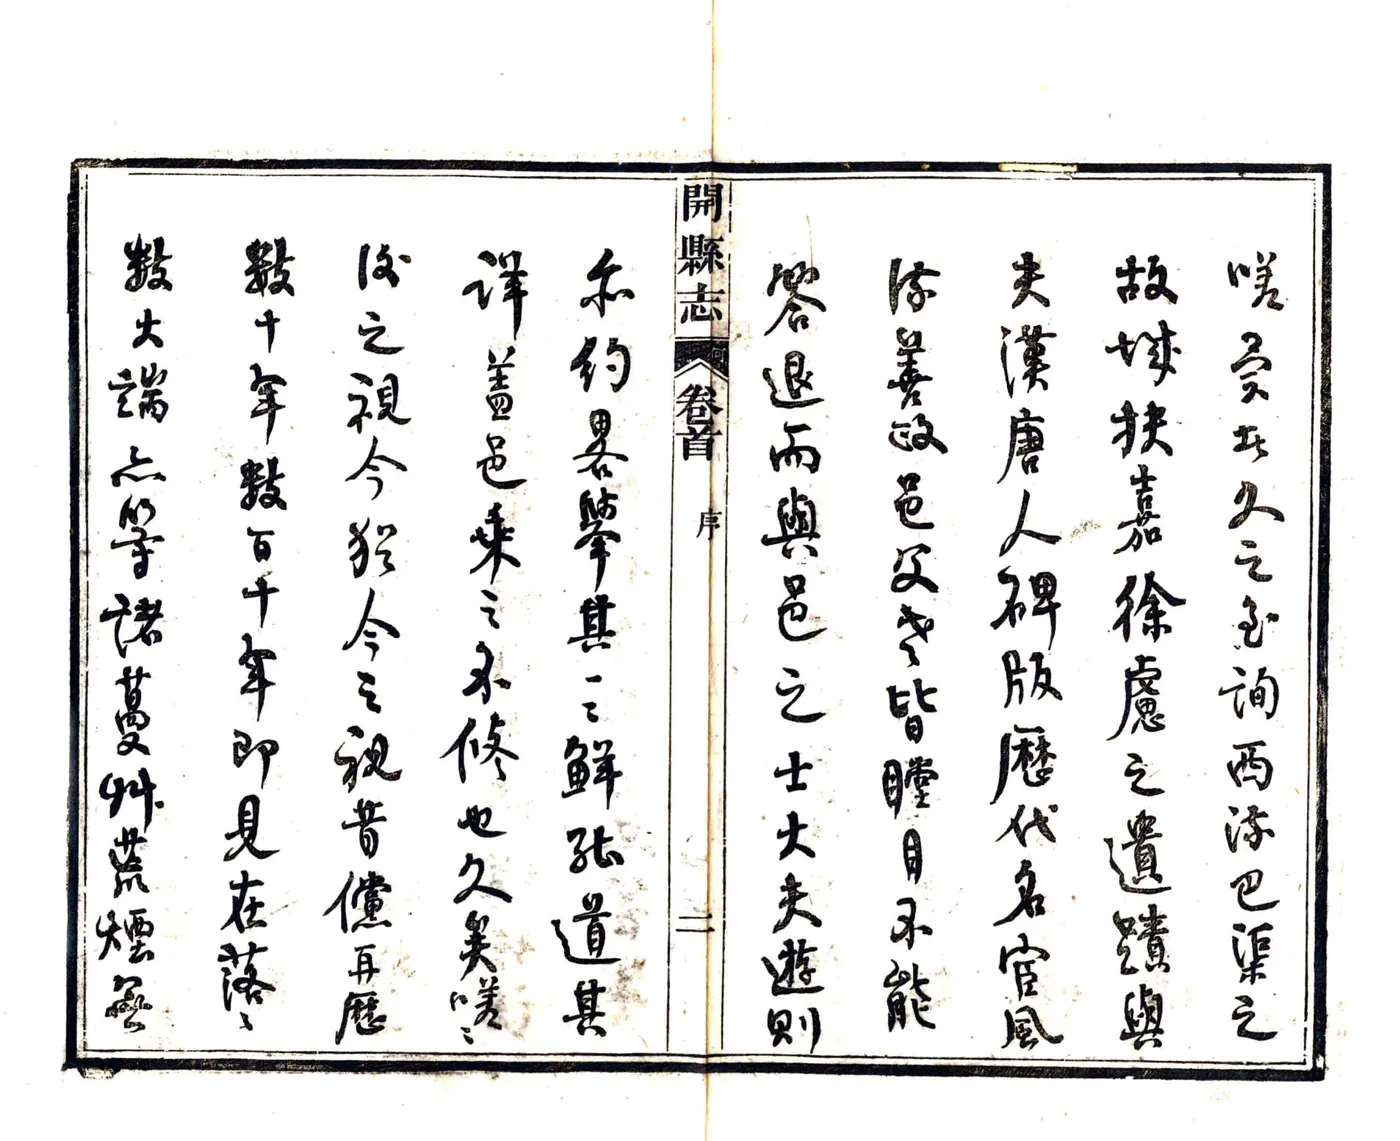 嗟者久之至詢西流巴渠之
故城扶嘉徐慮之遺蹟與
夫漢唐人碑版歷代名宦風
流善政邑父老皆瞠目不能
答退而與邑之士大夫遊則
開縣志 卷首 序 二
亦約畧舉其一二鮮能道其
詳蓋邑乘之不修也久矣嗟〻
後之視今猶今之視昔儻再歷
數十年數百十年即見在落〻
數大端亦等諸蔓艸荒煙無